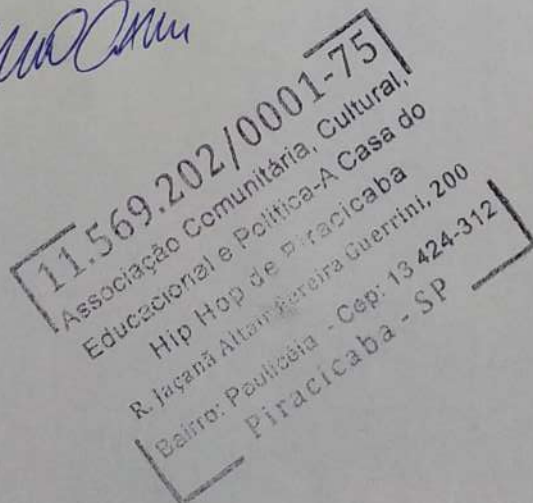 11.569.202/0001-75
Associação Comunitária, Cultural,
Educacional e Política-A Casa do
Hip Hop de Piracicaba
R. Jaçanã Altair Pereira Guerrini, 200
Bairro: Paulicéia - Cep: 13 424-312
Piracicaba - SP